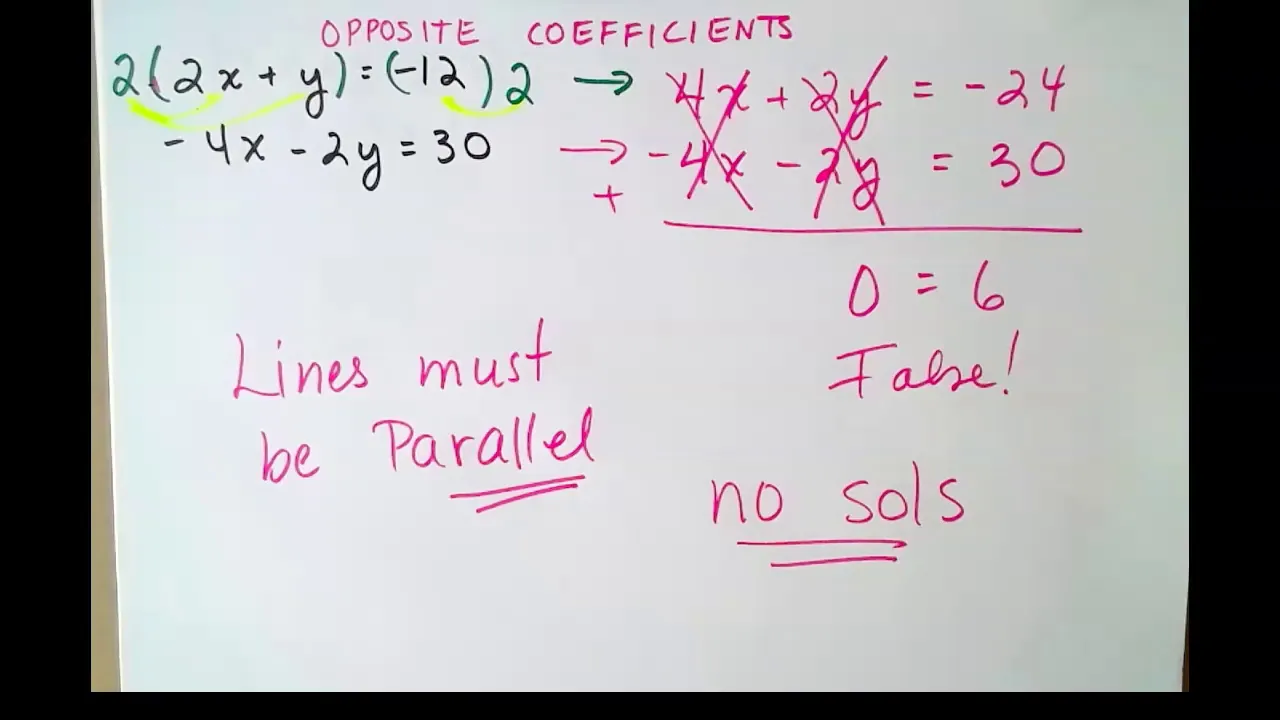 OPPOSITE COEFFICIENTS
2(2x + y) = (-12)2 → 4x + 2y = -24
-4x - 2y = 30 → -4x - 2y = 30
+
0 = 6
False!
Lines must
be Parallel
no sols